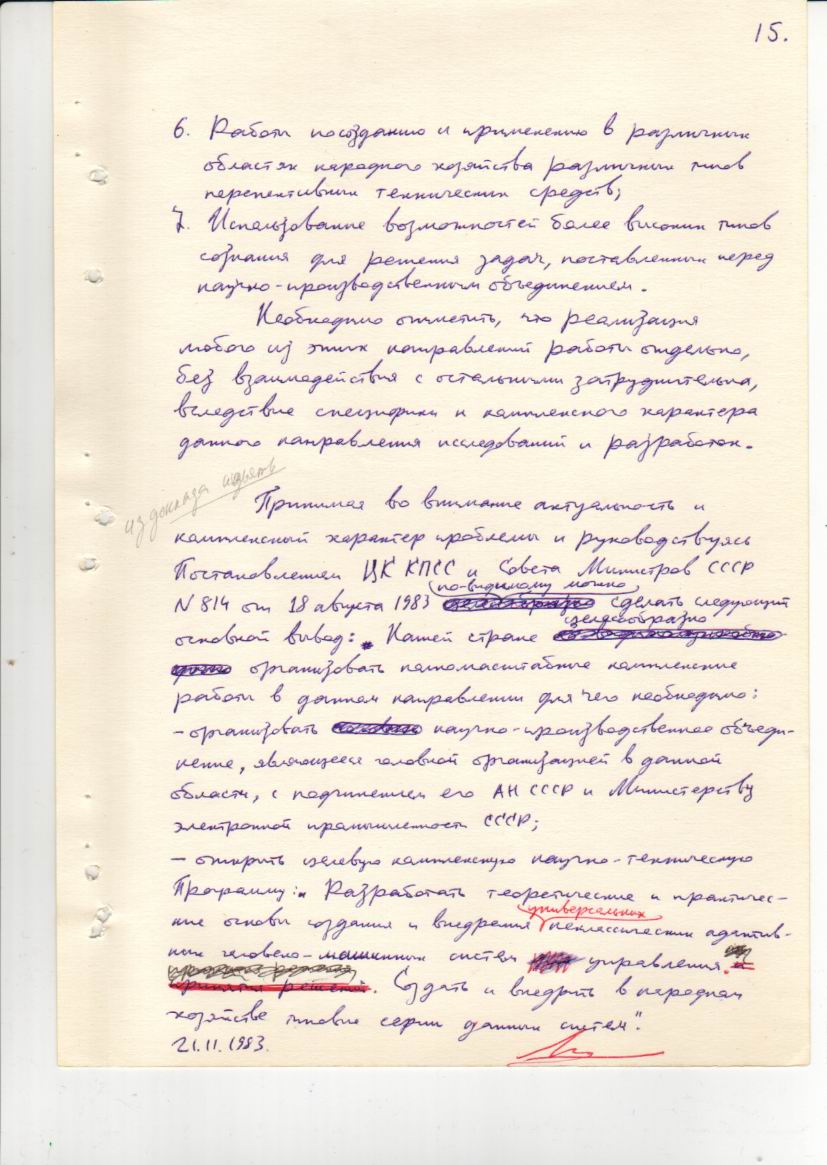 15.
6. Работы по созданию и применению в различных
областях народного хозяйства различных типов
перспективных технических средств;
7. Использование возможностей более высоких типов
сознания для решения задач, поставленных перед
научно-производственным объединением.
Необходимо отметить, что реализация
любого из этих направлений работы отдельно,
без взаимодействия с остальными затруднительна,
вследствие специфики и комплексного характера
данного направления исследований и разработок.
из доклада изъять
Принимая во внимание актуальность и
комплексный характер проблемы и руководствуясь
Постановлением ЦК КПСС и Совета Министров СССР
по-видимому можно
N 814 от 18 августа 1983 сделать следующий
целесообразно
основной вывод: Нашей стране
организовать полномасштабные комплексные
работы в данном направлении для чего необходимо:
- организовать научно-производственное объеди-
нение, являющееся головной организацией в данной
области, с подчинением его АН СССР и Министерству
электронной промышленности СССР;
- открыть целевую комплексную научно-техническую
Программу: Разработать теоретические и практичес-
универсальных
кие основы создания и внедрения неклассических адаптив-
ных человеко-машинных систем управления.
принятия решений. Создать и внедрить в народном
хозяйстве типовые серии данных систем".
21.11.1983.